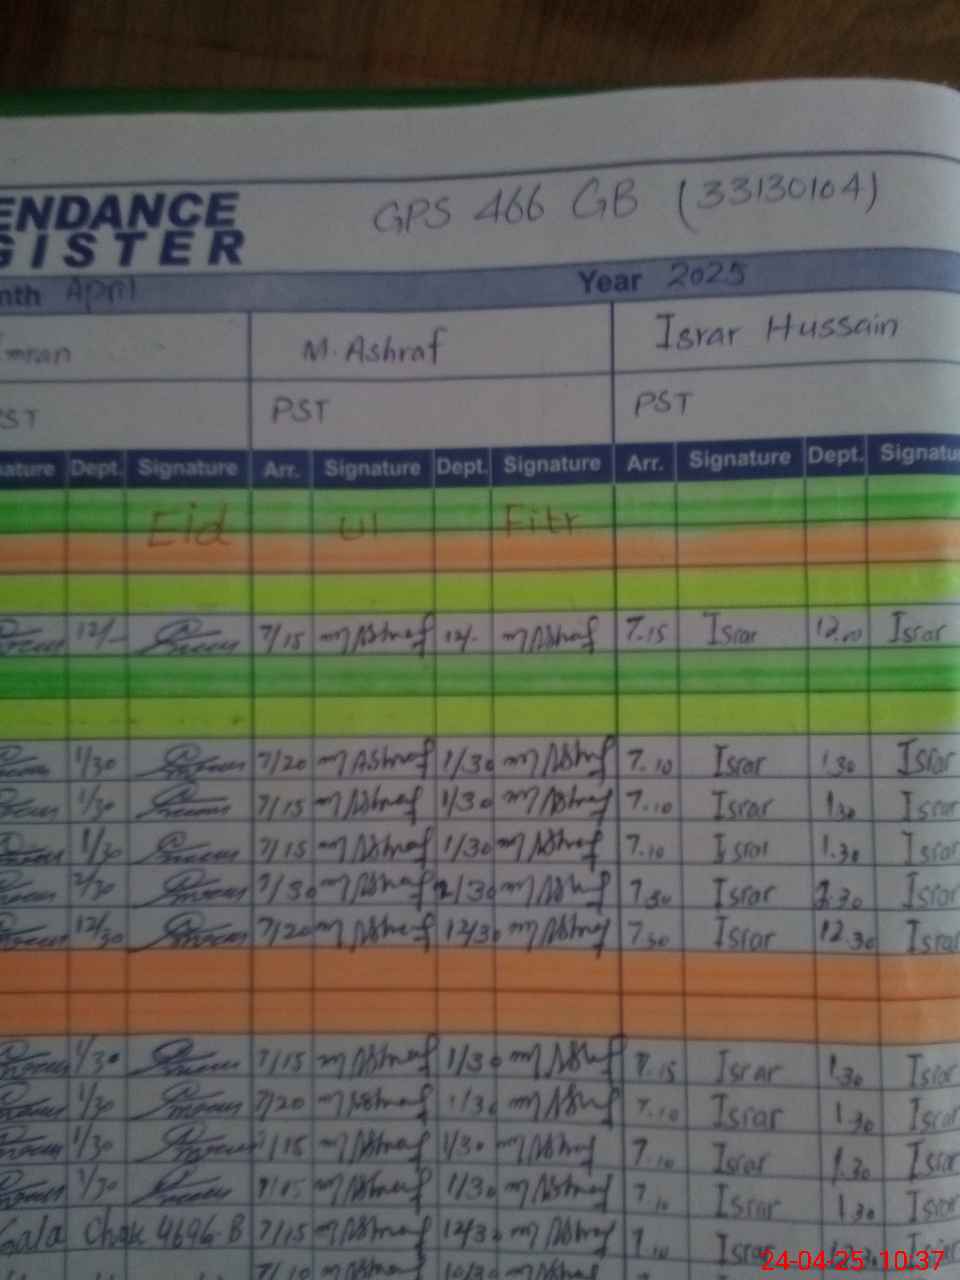 ENDANCE
GISTER
GPS 466 GB (33130104)
nth April Year 2025
mran M. Ashraf Israr Hussain
PST PST PST
ature Dept. Signature Arr. Signature Dept. Signature Arr. Signature Dept. Signatu
Eid Ul Fitr
12/- 7/15 M Ashraf 12/- M Ashraf 7.15 Israr 12.00 Israr
1/30 7/20 M Ashraf 1/30 M Ashraf 7.10 Israr 1.30 Israr
1/30 7/15 M Ashraf 1/30 M Ashraf 7.10 Israr 1.30 Israr
1/30 7/15 M Ashraf 1/30 M Ashraf 7.10 Israr 1.30 Israr
2/30 7/30 M Ashraf 2/30 M Ashraf 7.30 Israr 2.30 Israr
12/30 7/20 M Ashraf 12/30 M Ashraf 7.30 Israr 12.30 Israr
1/30 7/15 M Ashraf 1/30 M Ashraf 7.15 Israr 1.30 Israr
1/30 7/20 M Ashraf 1/30 M Ashraf 7.10 Israr 1.30 Israr
1/30 7/15 M Ashraf 1/30 M Ashraf 7.10 Israr 1.30 Israr
1/30 7/15 M Ashraf 1/30 M Ashraf 7.10 Israr 1.30 Israr
Gala Chak 469G-B 7/15 M Ashraf 12/30 M Ashraf 7.10 Israr
7/10 10/30
24-04-25 10:37